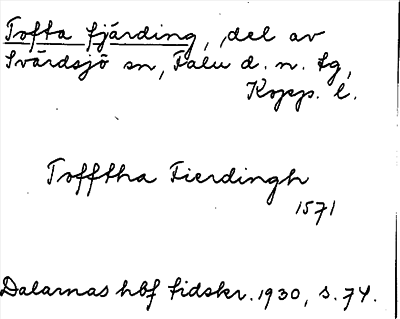 Tofta fjärding, del av
Svärdsjö sn, Falu d. n. tg,
Kopp. l.
Tofftha Fierdingh
1571
Dalarnas hbf tidskr. 1930, s. 74.